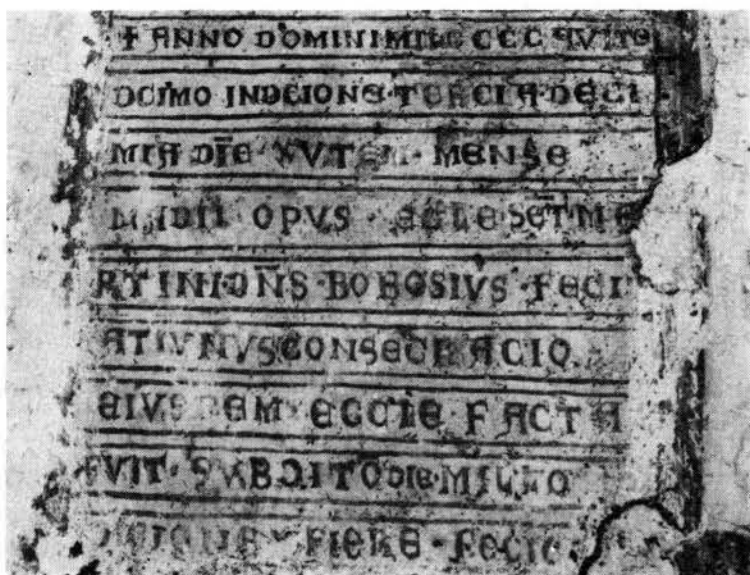 + ANNO DOMINI MILL CCC QVITO
DCIMO INDCIONE · TERCIA DECI
MIA DIE XV TEM · MENSE
MADII OPVS · ECLE SCT ME
RTINI · DNS BOBOSIVS · FECI
ATIVNVS CONSECRACIO
EIVSDEM · ECCIE · FACTA
FVIT · SVBDITO DIE · MILLO
FIERE · FECIT